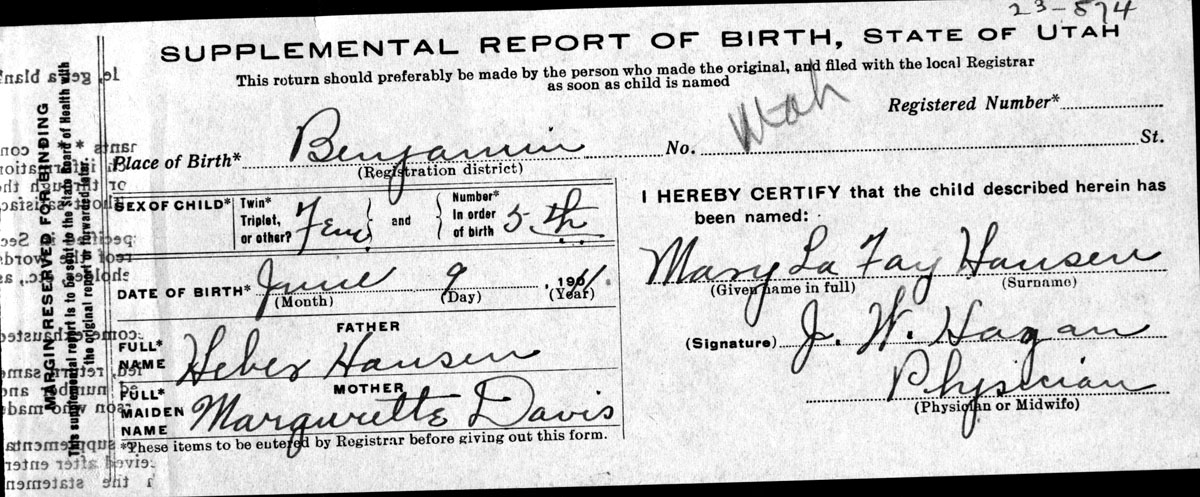 23-874
SUPPLEMENTAL REPORT OF BIRTH, STATE OF UTAH
This return should preferably be made by the person who made the original, and filed with the local Registrar
as soon as child is named
Registered Number*
Utah
Place of Birth* Benjamin No. St.
(Registration district)
SEX OF CHILD* Twin* Triplet, or other? Fem. and Number* In order of birth 5th
DATE OF BIRTH* June 9, 19
(Month) (Day) (Year)
FATHER
FULL* NAME Heber Hansen
MOTHER
FULL* MAIDEN NAME Margurette Davis
*These items to be entered by Registrar before giving out this form.
I HEREBY CERTIFY that the child described herein has
been named:
Mary La Fay Hansen
(Given name in full) (Surname)
(Signature) J. W. Hagan
Physician
(Physician or Midwife)
MARGIN RESERVED FOR BINDING
This supplemental report is to be sent to the State Board of Health with
the original report or forwarded later.